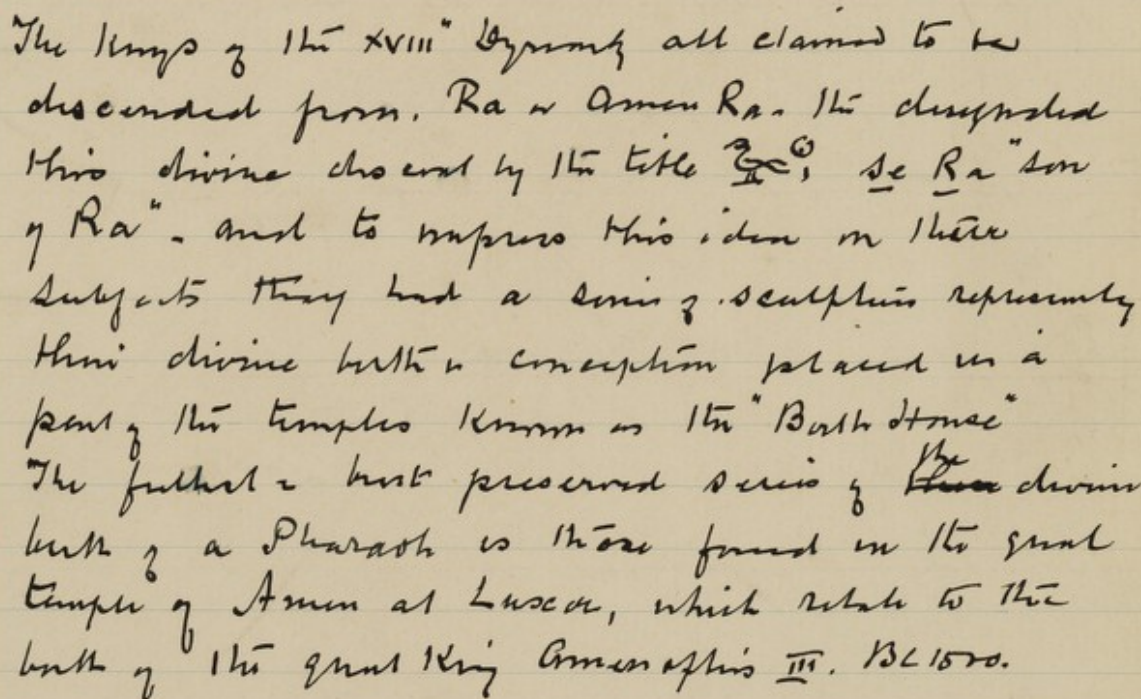 The Kings of the XVIII" Dynasty all claimed to be
descended from. Ra or Amen Ra. the designated
this divine descent by the title Se Ra "son
of Ra" - and to impress this idea on their
subjects they had a series of sculptures representing
their divine birth & conception placed in a
part of the temples known as the "Birth House"
The fullest & best preserved series of the divine
birth of a Pharaoh is those found in the great
temple of Amen at Luxor, which relate to the
birth of the great King Amenophis III. BC 1500.